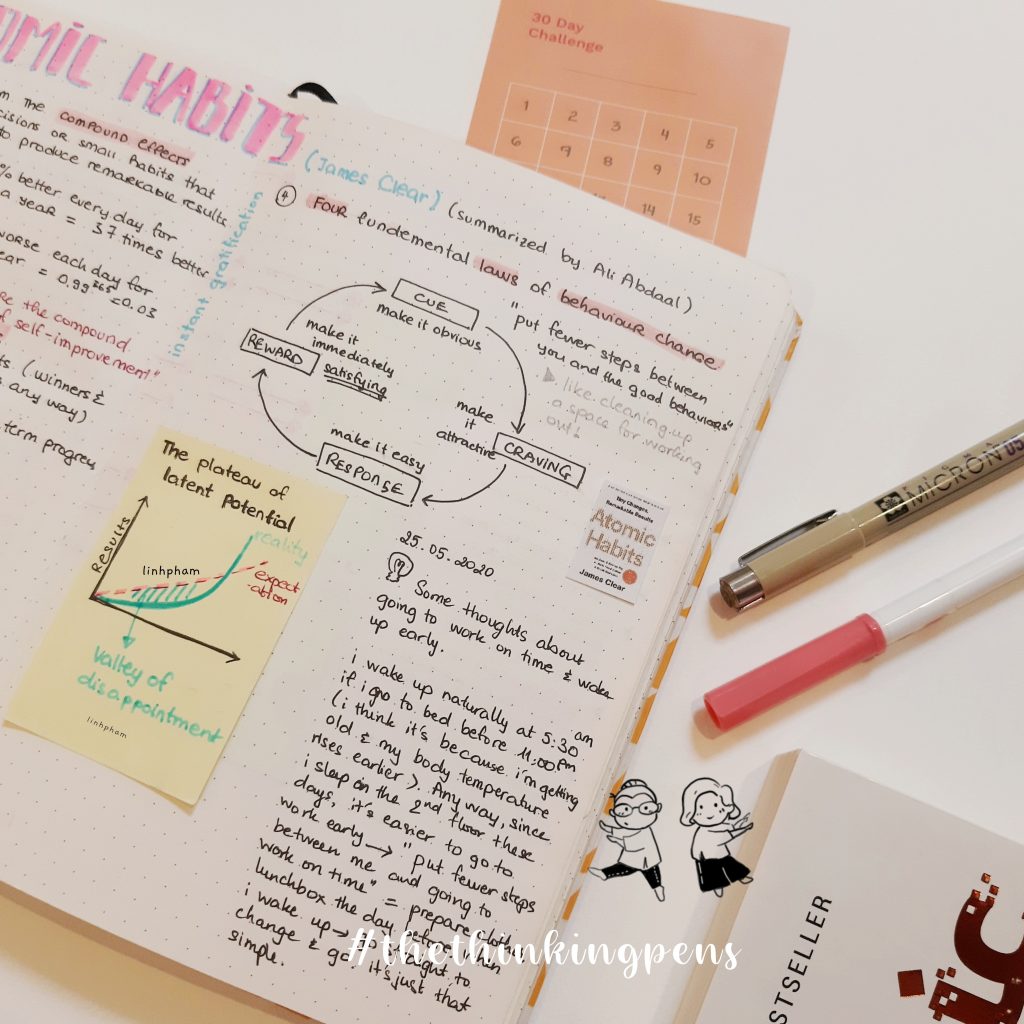 OMIC HABITS
(James Clear) (summarized by Ali Abdaal)
m the compound effects
cisions or small habits that
to produce remarkable results
% better every day for
a year = 37 times better
worse each day for
ear = 0.99^365 = 0.03
e the compound
of self-improvement"
ts (winners &
s any way)
term progress
instant gratification
The plateau of
latent potential
Results
reality
linhpham
expect
-ation
Valley of
disappointment
linhpham
④ Four fundemental laws of behaviour change
CUE
make it obvious
"put fewer steps between
you and the good behaviors"
like cleaning up
a space for working
out!
make
it
attractive
CRAVING
make it easy
RESPONSE
REWARD
make it
immediately
satisfying
Tiny Changes,
Remarkable Results
Atomic
Habits
James Clear
25.05.2020
Some thoughts about
going to work on time & wake
up early.
i wake up naturally at 5:30 am
if i go to bed before 11:00 pm
(i think it's because i'm getting
old & my body temperature
rises earlier). Anyway, since
i sleep on the 2nd floor these
days, it's easier to go to
work early → "put fewer steps
between me and going to
work on time" = prepare clothes
lunchbox the day before when
i wake up → straight to
change & go. it's just that
simple.
30 Day
Challenge
1 2 3 4 5
6 7 8 9 10
14 15
MICRON 05
STSELLER
#thethinkingpens